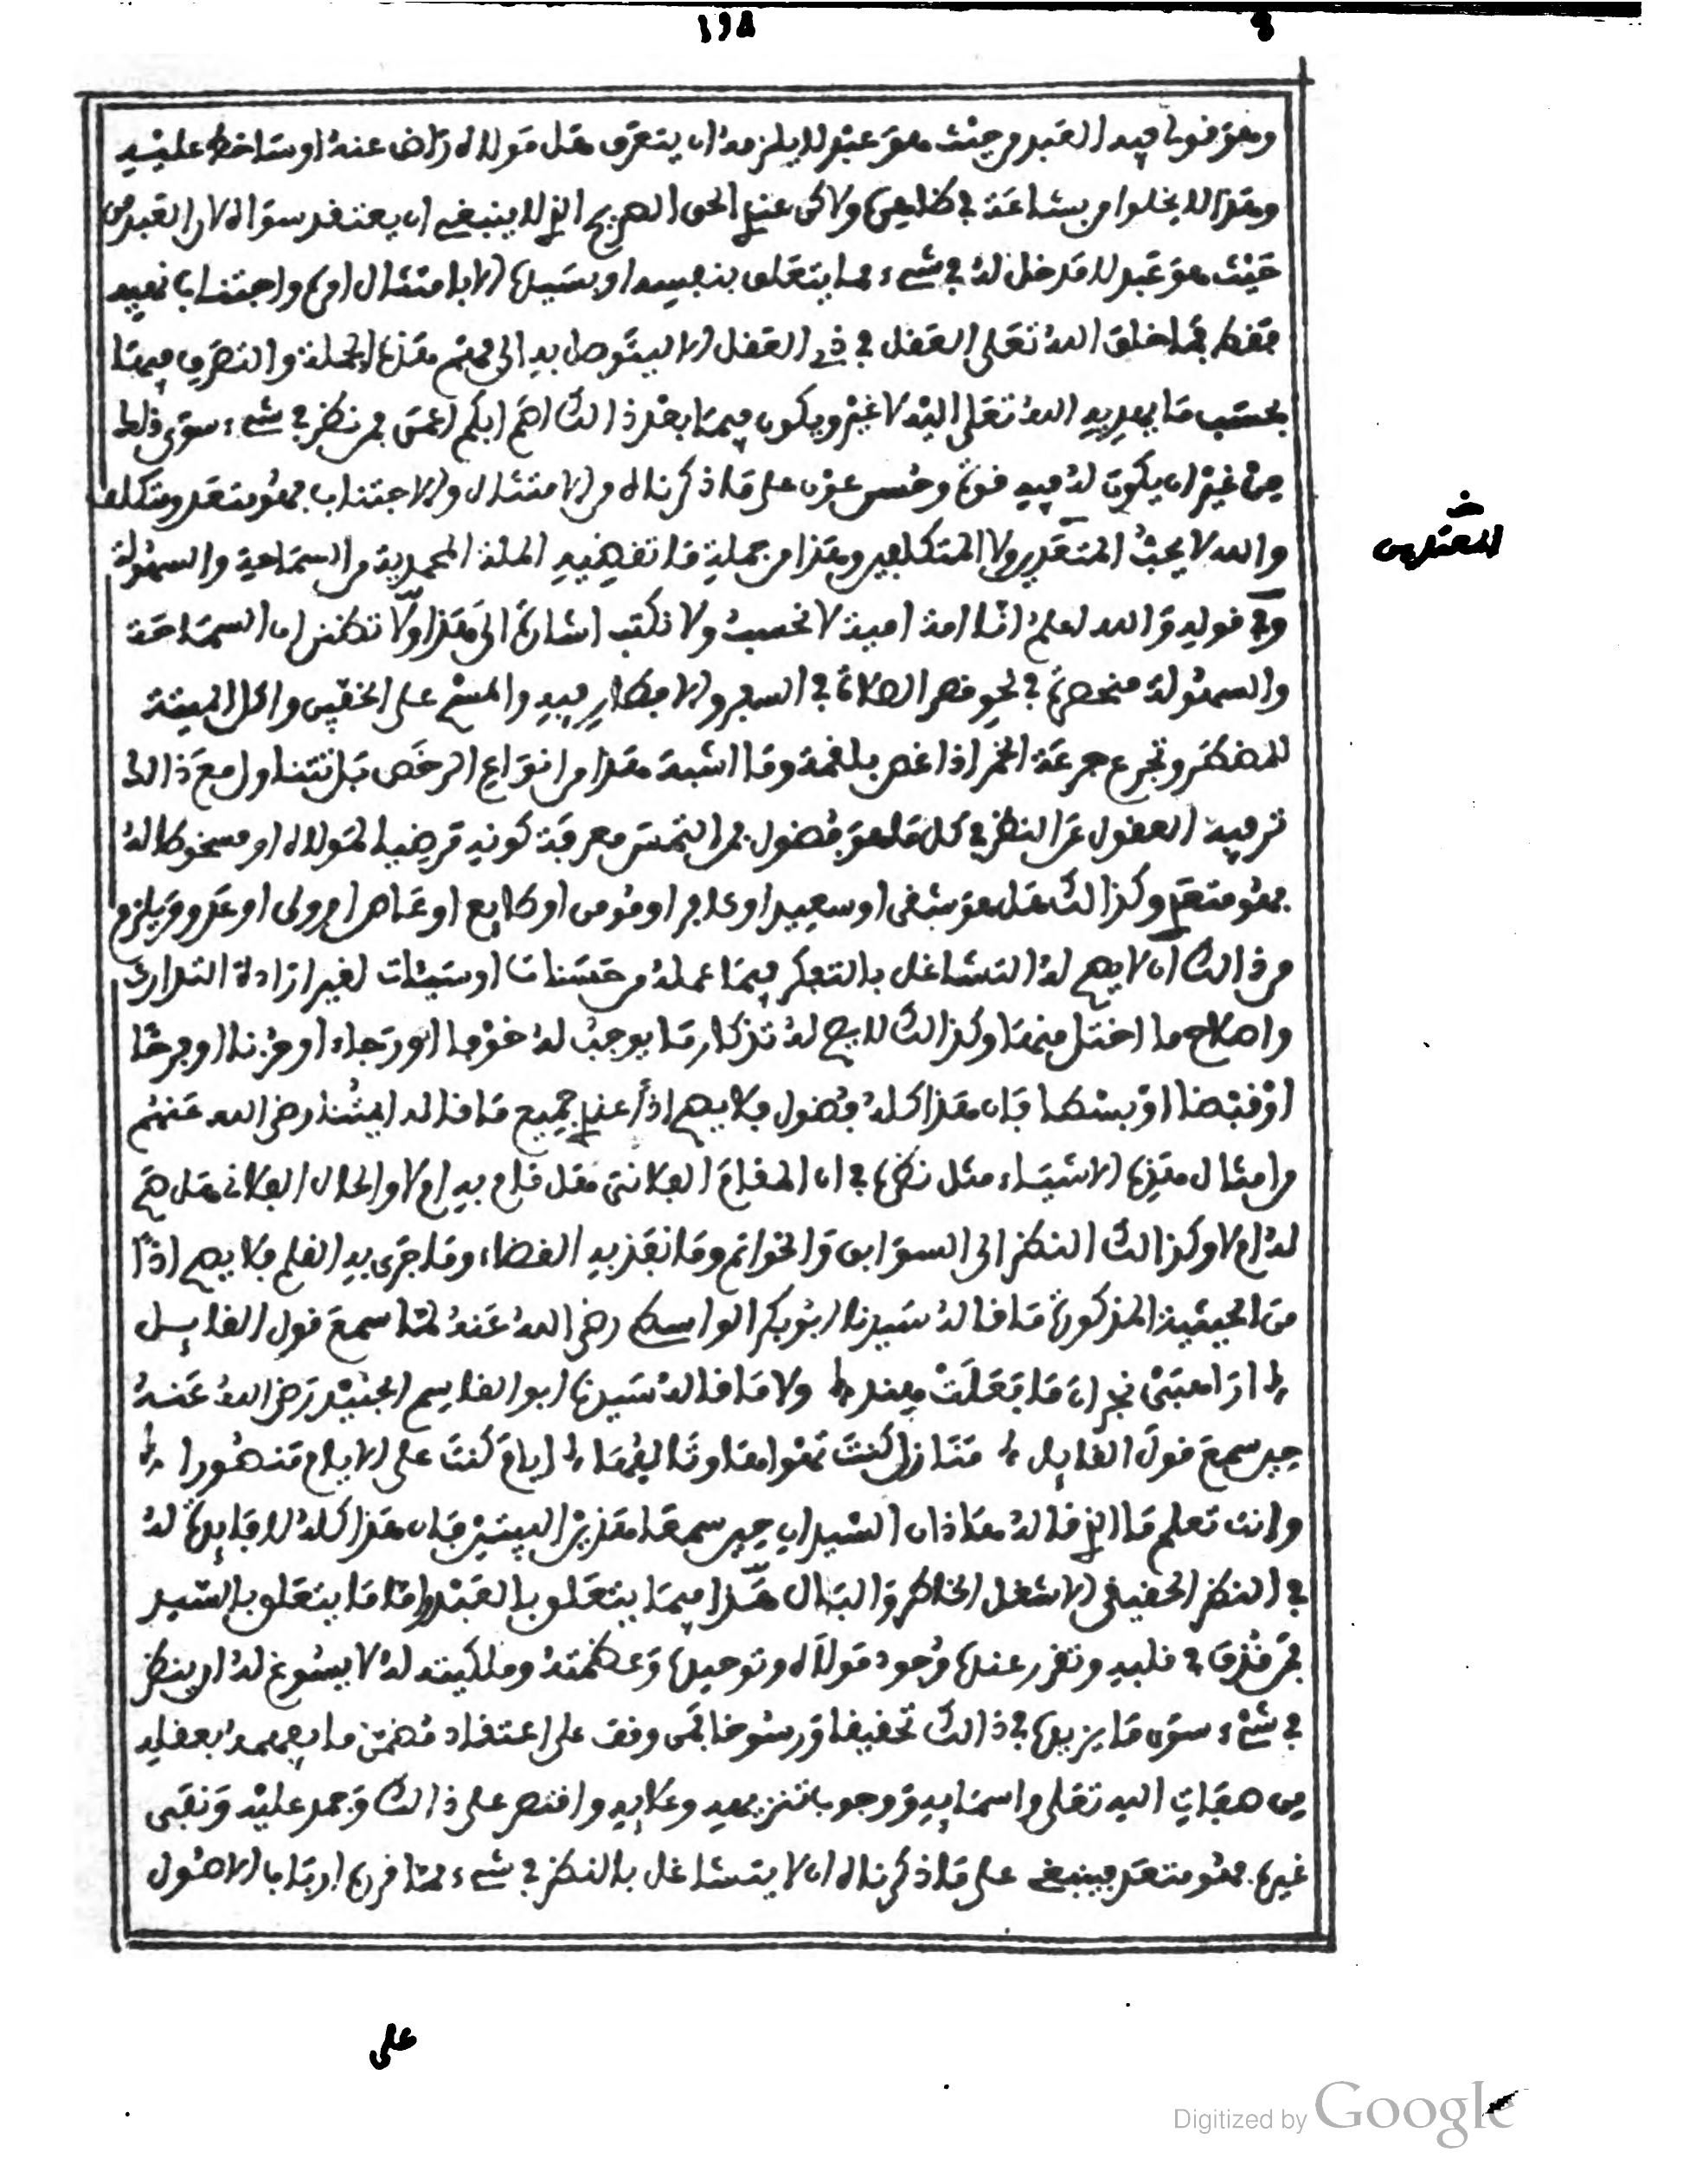 ١٩٨
وهو قولنا فيه العبد من حيث هو عبد لا يلزمه ان يتعرف هل مولاه راض عنه او ساخط عليه
وهذا لا يخلوا من بشاعة في ظاهره ولاكن عند الحق الصريح الذي لا ينبغي ان يعتقد سواه لان العبد من
حيث هو عبد لا مدخل له في شيء مما يتعلق بنفسه او بسيده الا بامتثال امره واجتناب نهيه
فقط فما خلق الله تعلى العقل في ذي العقل الا ليتوصل به الى فهم هذه الجملة والتصرف فيها
بحسب ما يهديه الله تعلى اليه لا غير ويكون فيما بعد ذالك اصم ابكم اعمى فمن نظر في شيء سوى ذلك
من غير ان يكون له فيه قوة وحسن عون على ما ذكرناه من الامتثال والاجتناب فهو متعد ومتكلف
والله لا يحب المتعدين ولا المتكلفين وهذا من جملة ما تقتضيه الملة المحمدية من السماحة والسهولة
وفي قوله والله اعلم انا امة امية لا نحسب ولا نكتب اشارة الى هذا ولا تظنن ان السماحة
والسهولة منحصرة في نحو قصر الصلاة في السفر والافطار فيه والمسح على الخفين واكل الميتة
للمضطر وتجرع جرعة الخمر اذا غص بلقمة وما اشبه هذا من انواع الرخص بل تتناول مع ذالك
ترفيه العقول عن النظر في كل ما هو فضول فمن التمس معرفة كونه مرضيا لمولاه او مسخوطا له
فهو متعد وكذالك هل هو شقي او سعيد او كافر او مومن او طايع او عاص ام ولى او عدو ويلزم
من ذالك ان لا يصح له التشاغل بالتفكر فيما عمله من حسنات او سيئات لغير ارادة التدارك
واصلاح ما اختل منها وكذالك لا يصح له تذكار ما يوجب له خوفا او رجاء او حزنا او فرحا
او قبضا او بسطا فان هذا كله فضول فلا يصح اذا عند جميع ما قاله ايمتنا رضي الله عنهم
من امثال هذه الاشياء مثل نظره في ان المقام الفلاني هل قام به ام لا والحال الفلاني هل صح
له ام لا وكذالك النظر الى السوابق والخواتم وما نفذ به القضاء وما جرى به القلم فلا يصح اذا
من الحيثية المذكورة ما قاله سيدنا ابو بكر الواسطي رضي الله عنه لما سمع قول القايل
ولا ما قاله سيدنا ابو القاسم الجنيد رضي الله عنه
حين سمع قول القايل منازل كنت تهواها وتالفها ايام كنت على الايام منصورا
وانت تعلم ما الذي قاله هاذان السيدان حين سمعا هذين البيتين فان هذا كله لا فايدة له
في النظر الحقيقي الا شغل الخاطر والبال هذا فيما يتعلق بالعبد واما ما يتعلق بالسيد
فمن قذف في قلبه وتقرر عنده وجود مولاه وتوحيده وعظمته وملكيته له لا يسوغ له ان ينظر
في شيء سوى ما يزيده في ذالك تحقيقا ورسوخا فمن وقف على اعتقاد مهمى ما يفهمه بعقله
من صفات اليه تعلى واسمايه ووجوب تنزيهه وعلايه واقتصر على ذالك وجمد عليه ونفى
غيره فهو متعد فينبغي على ما ذكرناه ان لا يتشاغل بالنظر في شيء مما قرره ارباب الاصول
على
Digitized by Google